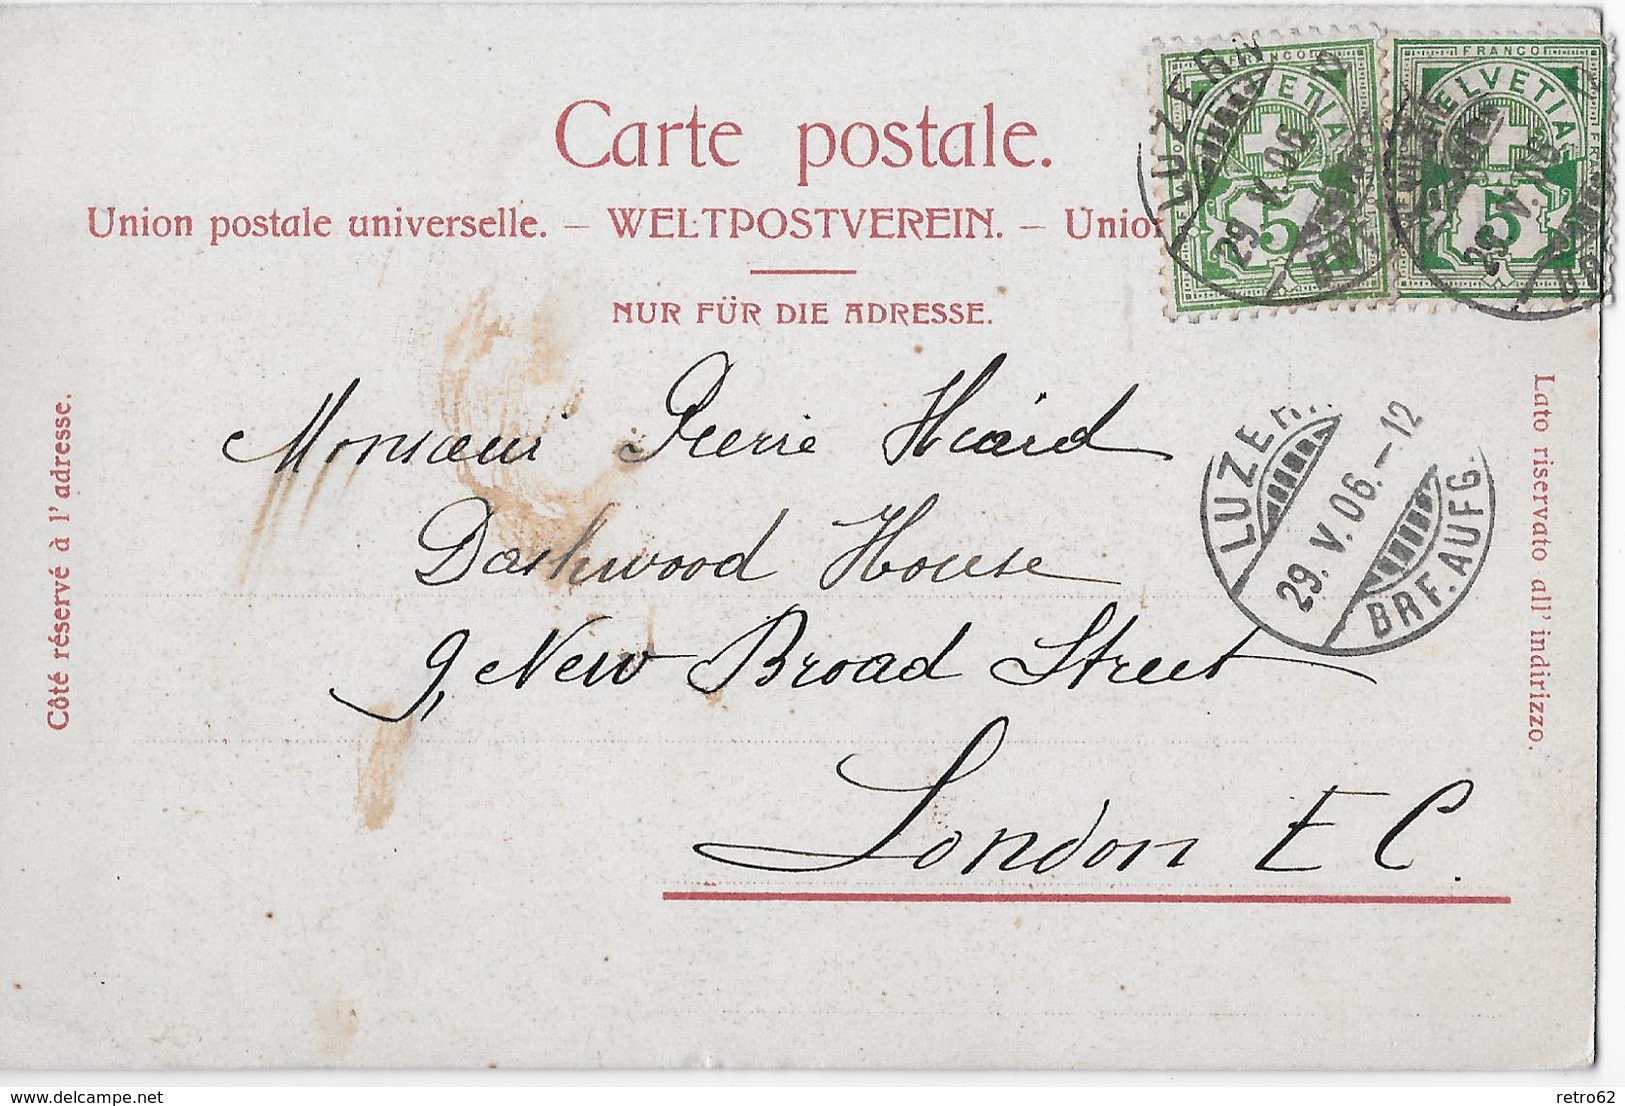 Carte postale.
Union postale universelle. – WELTPOSTVEREIN. – Union
NUR FÜR DIE ADRESSE.
FRANCO
HELVETIA
5
FRANCO
HELVETIA
5
LUZERN
29.V.06.-12
BRF. AUFG.
Côté réservé à l'adresse.
Lato riservato all'indirizzo.
Monsieur Pierre
Dashwood House
9, New Broad Street
London E C.
LUZERN
29.V.06.-12
BRF. AUFG.
delcampe.net
retro62